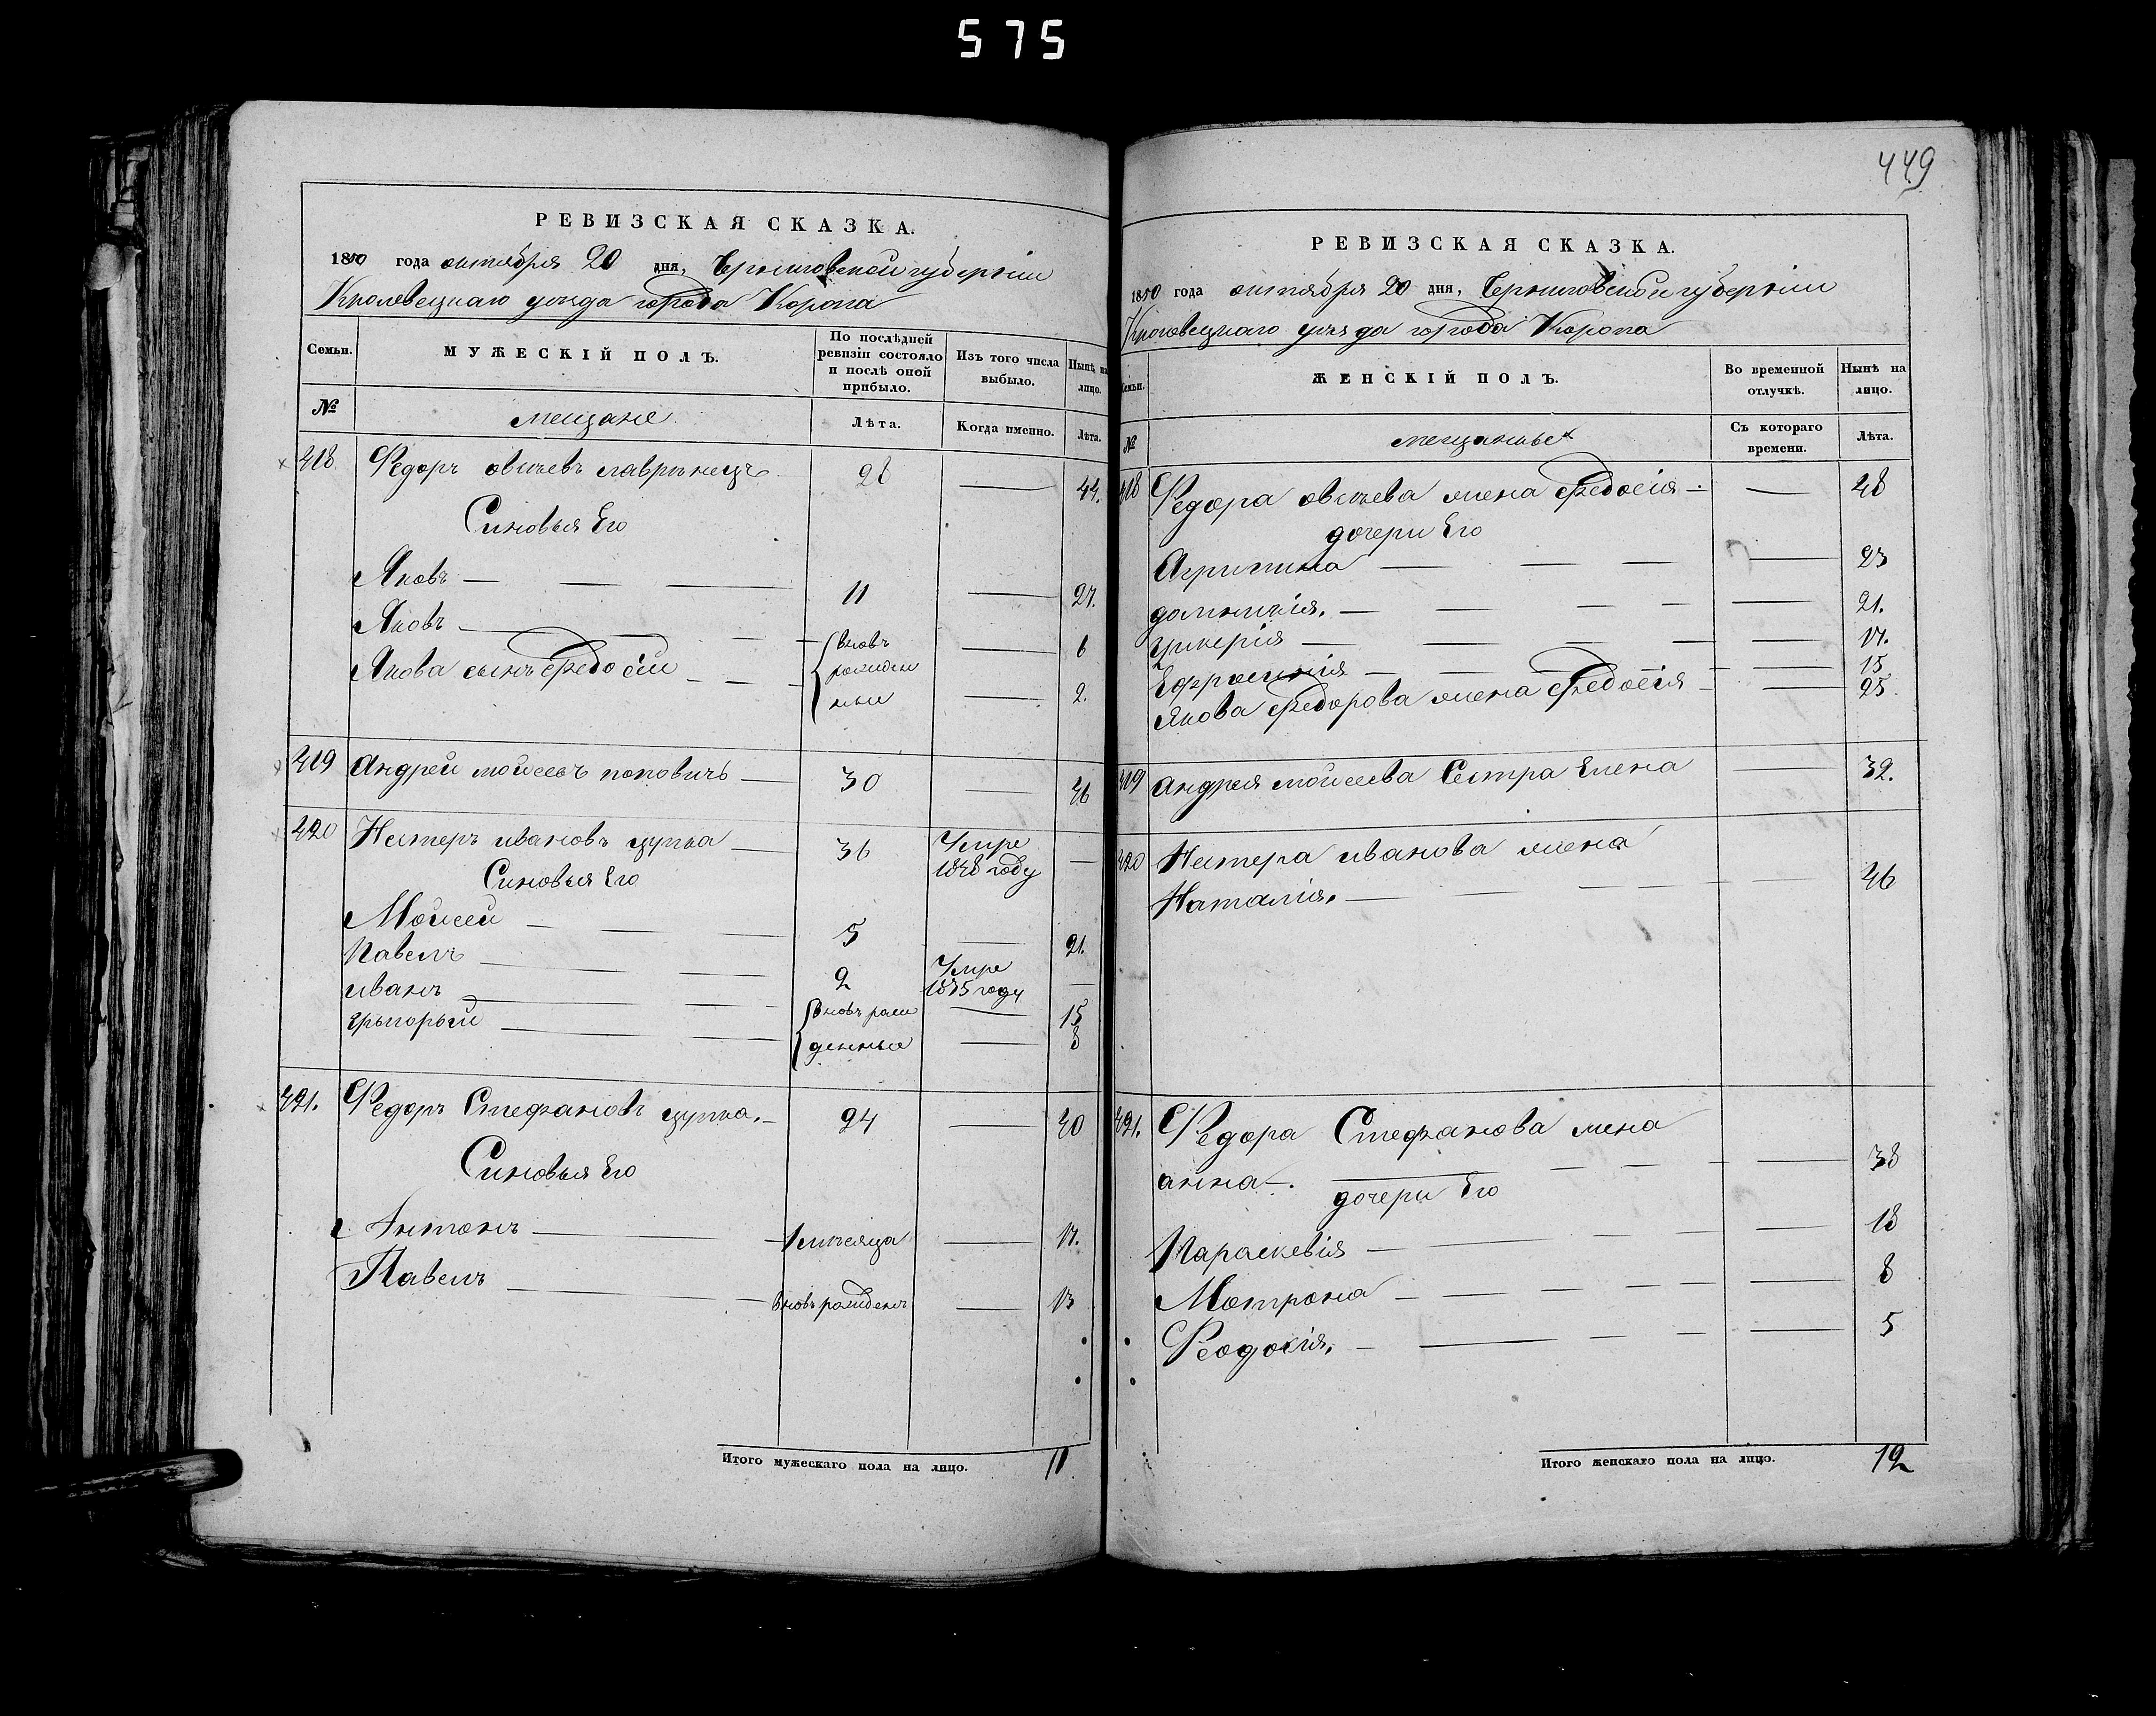 575
449
РЕВИЗСКАЯ СКАЗКА.
1850 года октября 20 дня, Черниговской губерніи
Кролевецкаго уезда города Коропа
Семьи.
МУЖЕСКІЙ ПОЛЪ.
По послѣдней ревизіи состояло и послѣ оной прибыло.
Изъ того числа выбыло.
Нынѣ на лицо.
№
мещане
Лѣта.
Когда именно.
Лѣта.
418 Федоръ лавринецъ 28 — 44.
Синовья Его
Яковъ — 11 — 27.
Яковъ — вновь — 6
Якова сынъ Федосѣй — рожден ныи — 2.
419 Андрей моисеевъ поповичъ — 30 — 46
420 Нестеръ ивановъ цупка — 36 Умре 1848 году —
Синовья Его
Моисей — 5 — 21.
Павелъ — 2 Умре 1835 году —
иванъ — вновь рож — 15
Грыгорый — денные — 8
421. Федоръ Стефановъ цупка. — 24 — 40
Синовья Его
Антонъ — 1 месяца — 17.
Павелъ — вновь рожденъ — 13
Итого мужескаго пола на лицо. 11
РЕВИЗСКАЯ СКАЗКА.
1850 года октября 20 дня, Черниговской губерніи
Кролевецкаго уезда города Коропа
Семьи.
ЖЕНСКІЙ ПОЛЪ.
Во временной отлучкѣ.
Нынѣ на лицо.
№
мещанъс
Съ котораго времени.
Лѣта.
418 Федора жена Федосія — — 48
дочери Его
Агрипина — — 23
домникія. — — 21.
гликерія — — 17.
Ефросинія — — 15
Якова Федорова жена Федосія — — 25.
419 Андрея моисеева Сестра Елена — 32.
420 Нестера иванова жена
Наталія. — — 46
421. Федора Стефанова жена
анна —. — 38
дочери Его
Параскевія — — 18
Мотрона — — 8
Феодосія. — — 5
Итого женскаго пола на лицо. 12